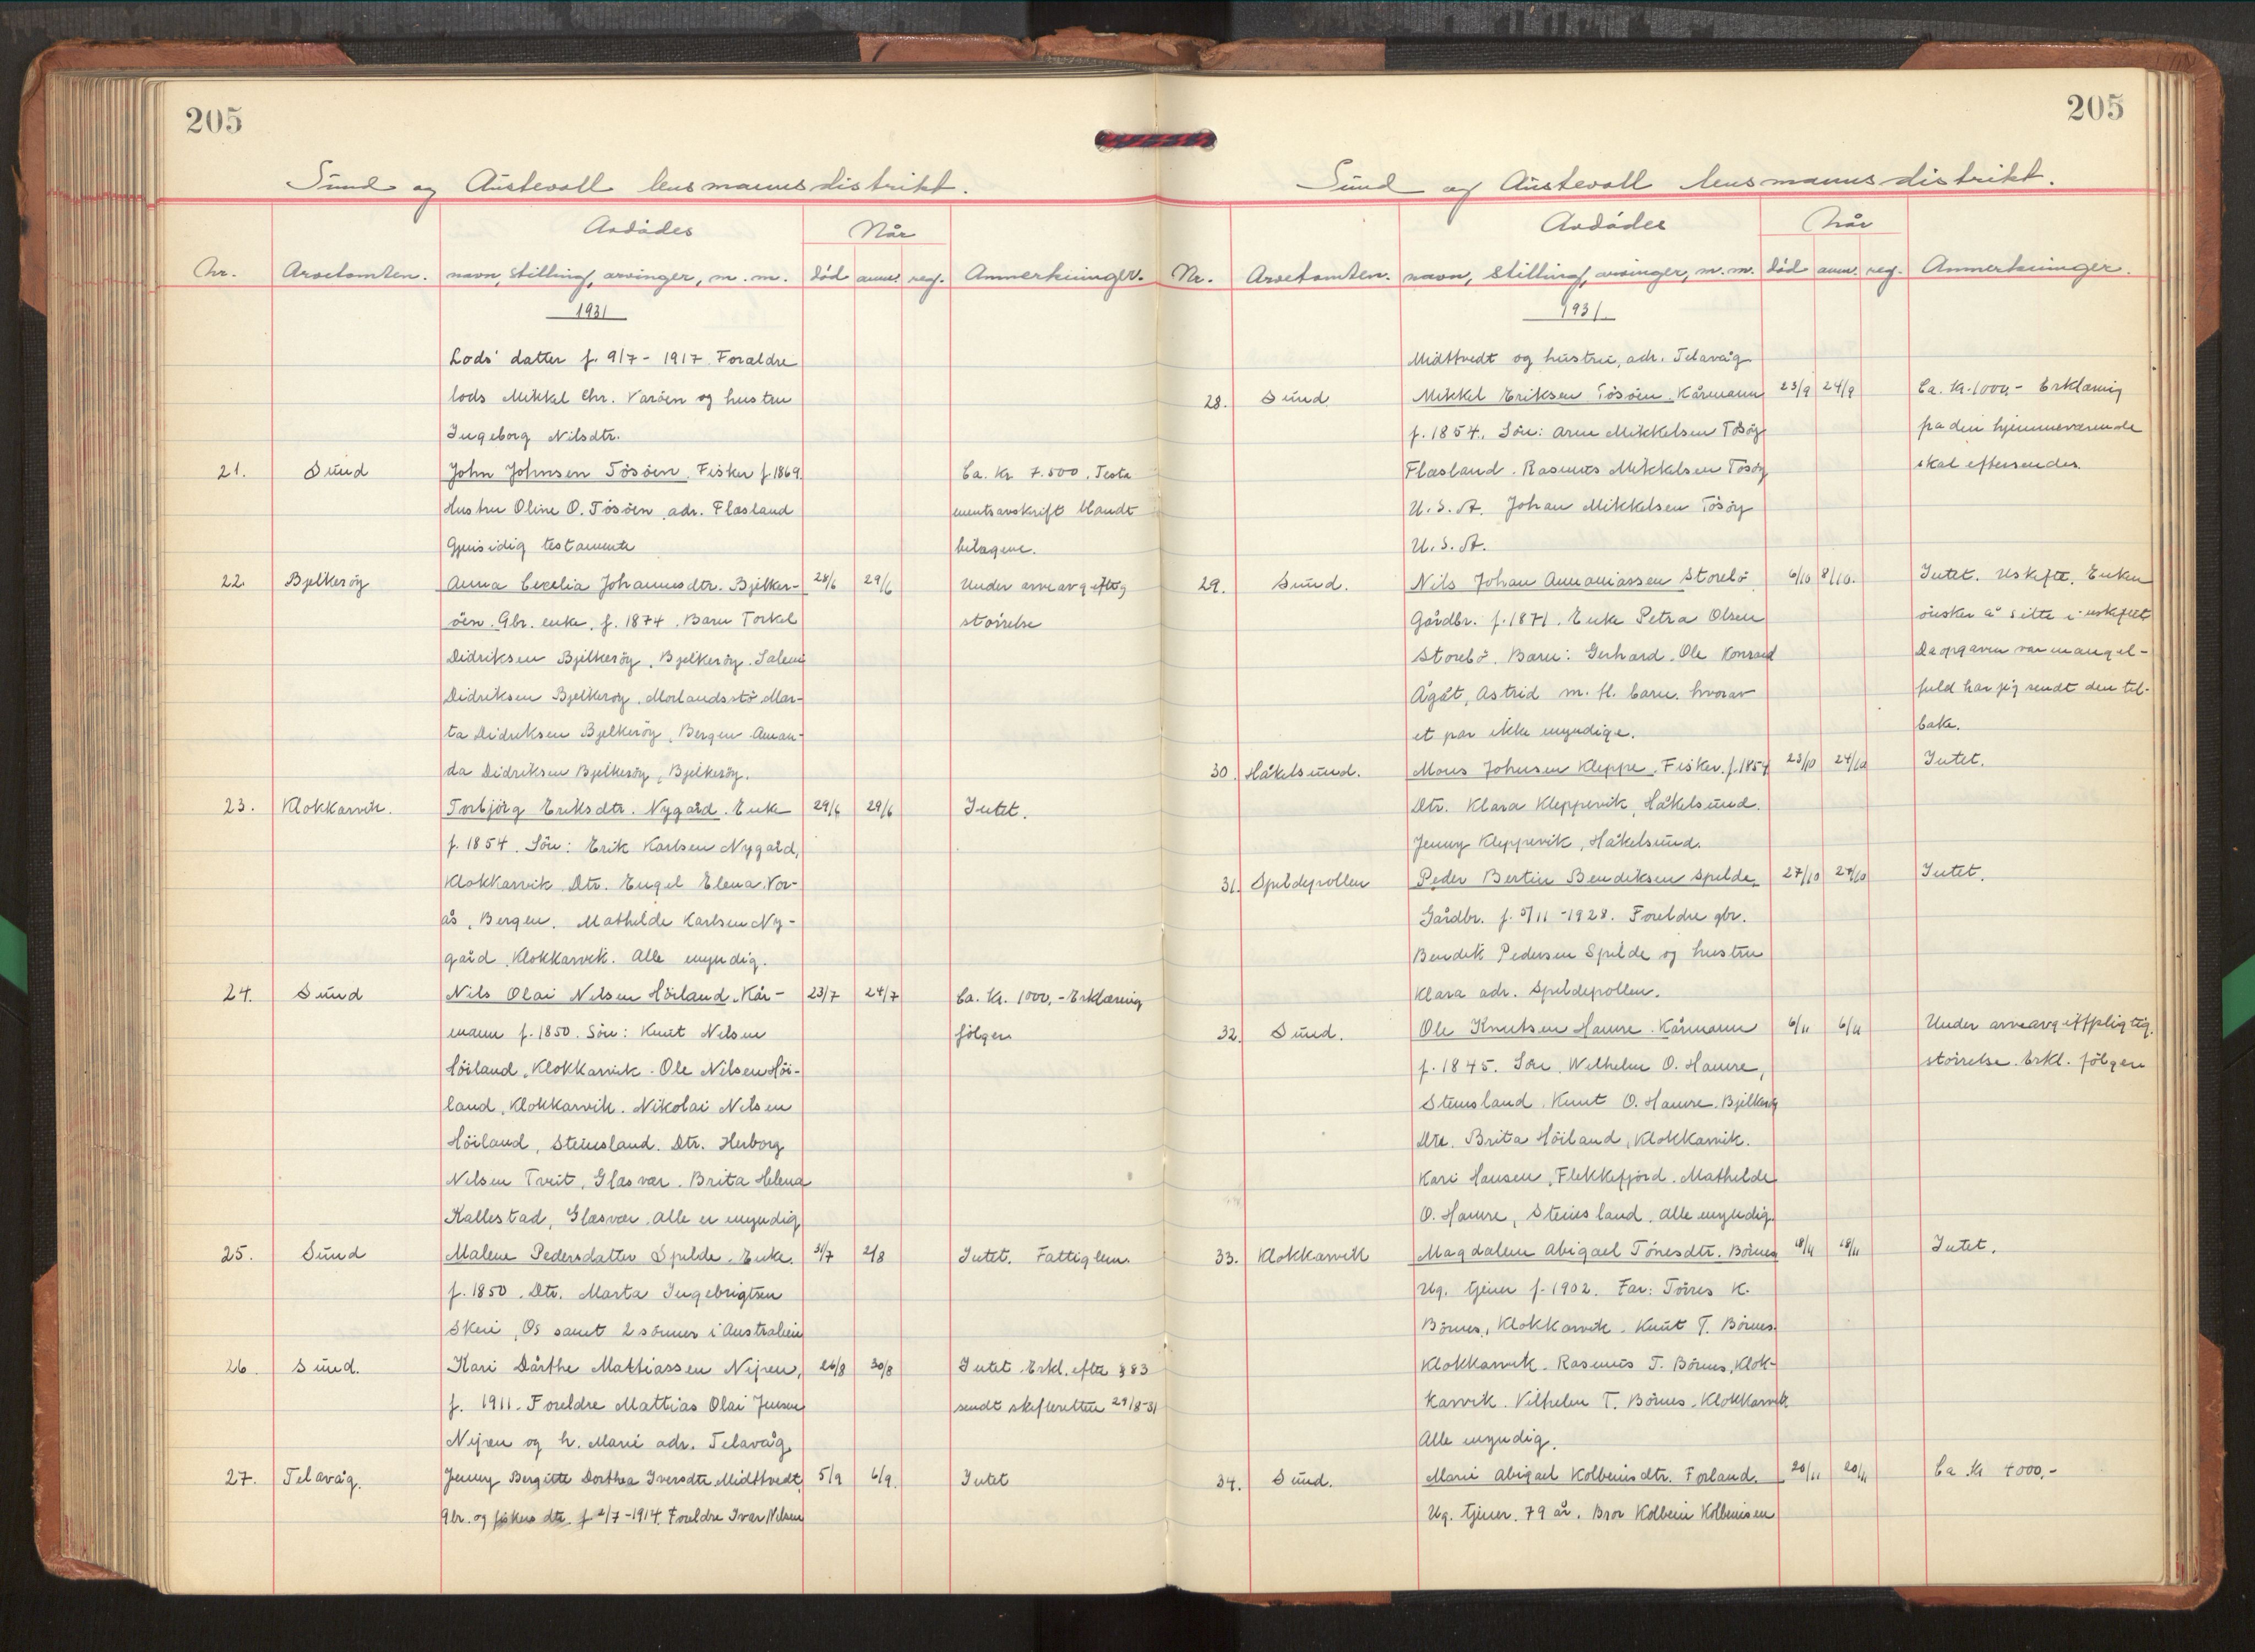 205
Sund og Austevoll lensmannsdistrikt.
Avdödes
Når
Nr. Avetomten. navn, stilling, arvinger, m. m. död anm. reg. Anmerkninger.
1931
Lods' datter f. 9/7 - 1917. Foraldre
lods Mikkel Chr. Varöen og hustru
Ingeborg Nilsdtr.
21. Sund John Johnsen Tösöen. Fisker f. 1869. Ca. Kr. 7.500. Testa
Hustru Oline O. Tösöen, adr. Flasland mentsavskrift blandt
Gjensidig testamente bilagene.
22. Bjelkeröy Anna Cecelia Johannesdtr. Bjelker- 28/6 29/6 Under arveavgiftig
öen. Gbr. enke, f. 1874. Barn Torkel störrelse
Didriksen Bjelkeröy, Bjelkeröy. Salem
Didriksen Bjelkeröy, Morlandsstö. Mar-
ta Didriksen Bjelkeröy, Bergen. Aman-
da Didriksen Bjelkeröy, Bjelkeröy.
23. Klokkarvik. Torbjörg Eriksdtr. Nygård. Enke 29/6 29/6 Intet.
f. 1854. Sön: Erik Karlsen Nygård,
Klokkarvik. Dtr. Engel Elena Vor-
ås, Bergen. Mathilde Karlsen Ny-
gård, Klokkarvik. Alle myndig.
24. Sund Nils Olai Nilsen Höiland. Kår- 23/7 24/7 Ca. Kr. 1000,- Erklæring
mann f. 1850. Sön: Knut Nilsen fölger
Höiland, Klokkarvik. Ole Nilsen Höi-
land, Klokkarvik. Nikolai Nilsen
Höiland, Steinsland. Dtr. Herborg
Nilsen Tveit, Glasvær. Brita Helena
Kallestad, Glasvær. Alle er myndig
25. Sund Malene Pedersdatter Spilde. Enke. 31/7 2/8 Intet. Fattiglem.
f. 1850. Dtr. Marta Ingebrigtsen
Skeie, Os samt 2 sönner i Australien
26. Sund. Kari Dårthe Mattiassen Nipen, 26/8 30/8 Intet. Erkl. efter § 83
f. 1911. Foreldre Mattias Olai Jensen sendt skifteretten 29/8-31
Nipen og h. Marie adr. Telavåg.
27. Telavåg. Jenny Bergitte Dorthea Iversdtr. Midttvedt 5/9 6/9. Intet
Gbr. og fiskers dtr. f. 2/7 - 1914. Foreldre Ivar Nilsen
205
Sund og Austevoll lensmannsdistrikt.
Avdödes
Når
Nr. Avetomten. navn, stilling, arvinger, m. m. död anm. reg. Anmerkninger.
1931
Midttvedt og hustru, adr. Telavåg
28. Sund Mikkel Eriksen Tösöen. Kårmann 23/9 24/9 Ca. Kr. 1000,- Erklæring
f. 1854. Sön: Arne Mikkelsen Tösöy fra den hjemmeværende
Flasland. Rasmus Mikkelsen Tösöy skal eftersendes.
U.S.A. Johan Mikkelsen Tösöy
U.S.A.
29. Sund. Nils Johan Annaniassen Storebö 6/10 8/10. Intet. Uskifte. Enken
Gårdbr. f. 1871. Enke Petra Olsen önsker å sitte i uskiftet
Storebö. Barn: Gerhard, Ole Konrad Da opgaven var mangel-
Ågåt, Astrid m. fl. barn. hvorav fuld har jeg sendt den til-
et par ikke myndige. bake.
30. Håkelsund. Mons Johnsen Kleppe. Fisker. f. 1854 23/10 24/10 Intet.
Dtr. Klara Kleppevik, Håkelsund.
Jenny Kleppevik, Håkelsund.
31. Spildepollen Peder Bertin Bendiksen Spilde. 27/10 29/10 Intet.
Gårdbr. f. 5/11 - 1928. Foreldre gbr.
Bendik Pedersen Spilde og hustru
Klara adr. Spildepollen.
32. Sund. Ole Knutsen Hamre. Kårmann 6/11 6/11 Under arveavgiftpligtig
f. 1845. Sön. Wilhelm O. Hamre, störrelse. Erkl. fölger
Steinsland. Knut O. Hamre. Bjelkeröy
Dtr. Brita Höiland, Klokkarvik.
Kari Hansen, Flekkefjord. Mathilde
O. Hamre, Steinsland. Alle myndig.
33. Klokkarvik Magdalene Abigael Tönesdtr. Börnes 18/11 18/11 Intet.
Ug. tjener f. 1902. Far: Törres K.
Börnes, Klokkarvik. Knut T. Börnes.
Klokkarvik. Rasmus T. Börnes, Klok-
karvik. Vilhelm T. Börnes. Klokkarvik
Alle myndig.
34. Sund. Marie Abigael Kolbeinsdtr. Forland. 20/11 20/11 Ca Kr 4000,-
Ug. tjener. 79 år. Bror Kolbein Kolbeinsen